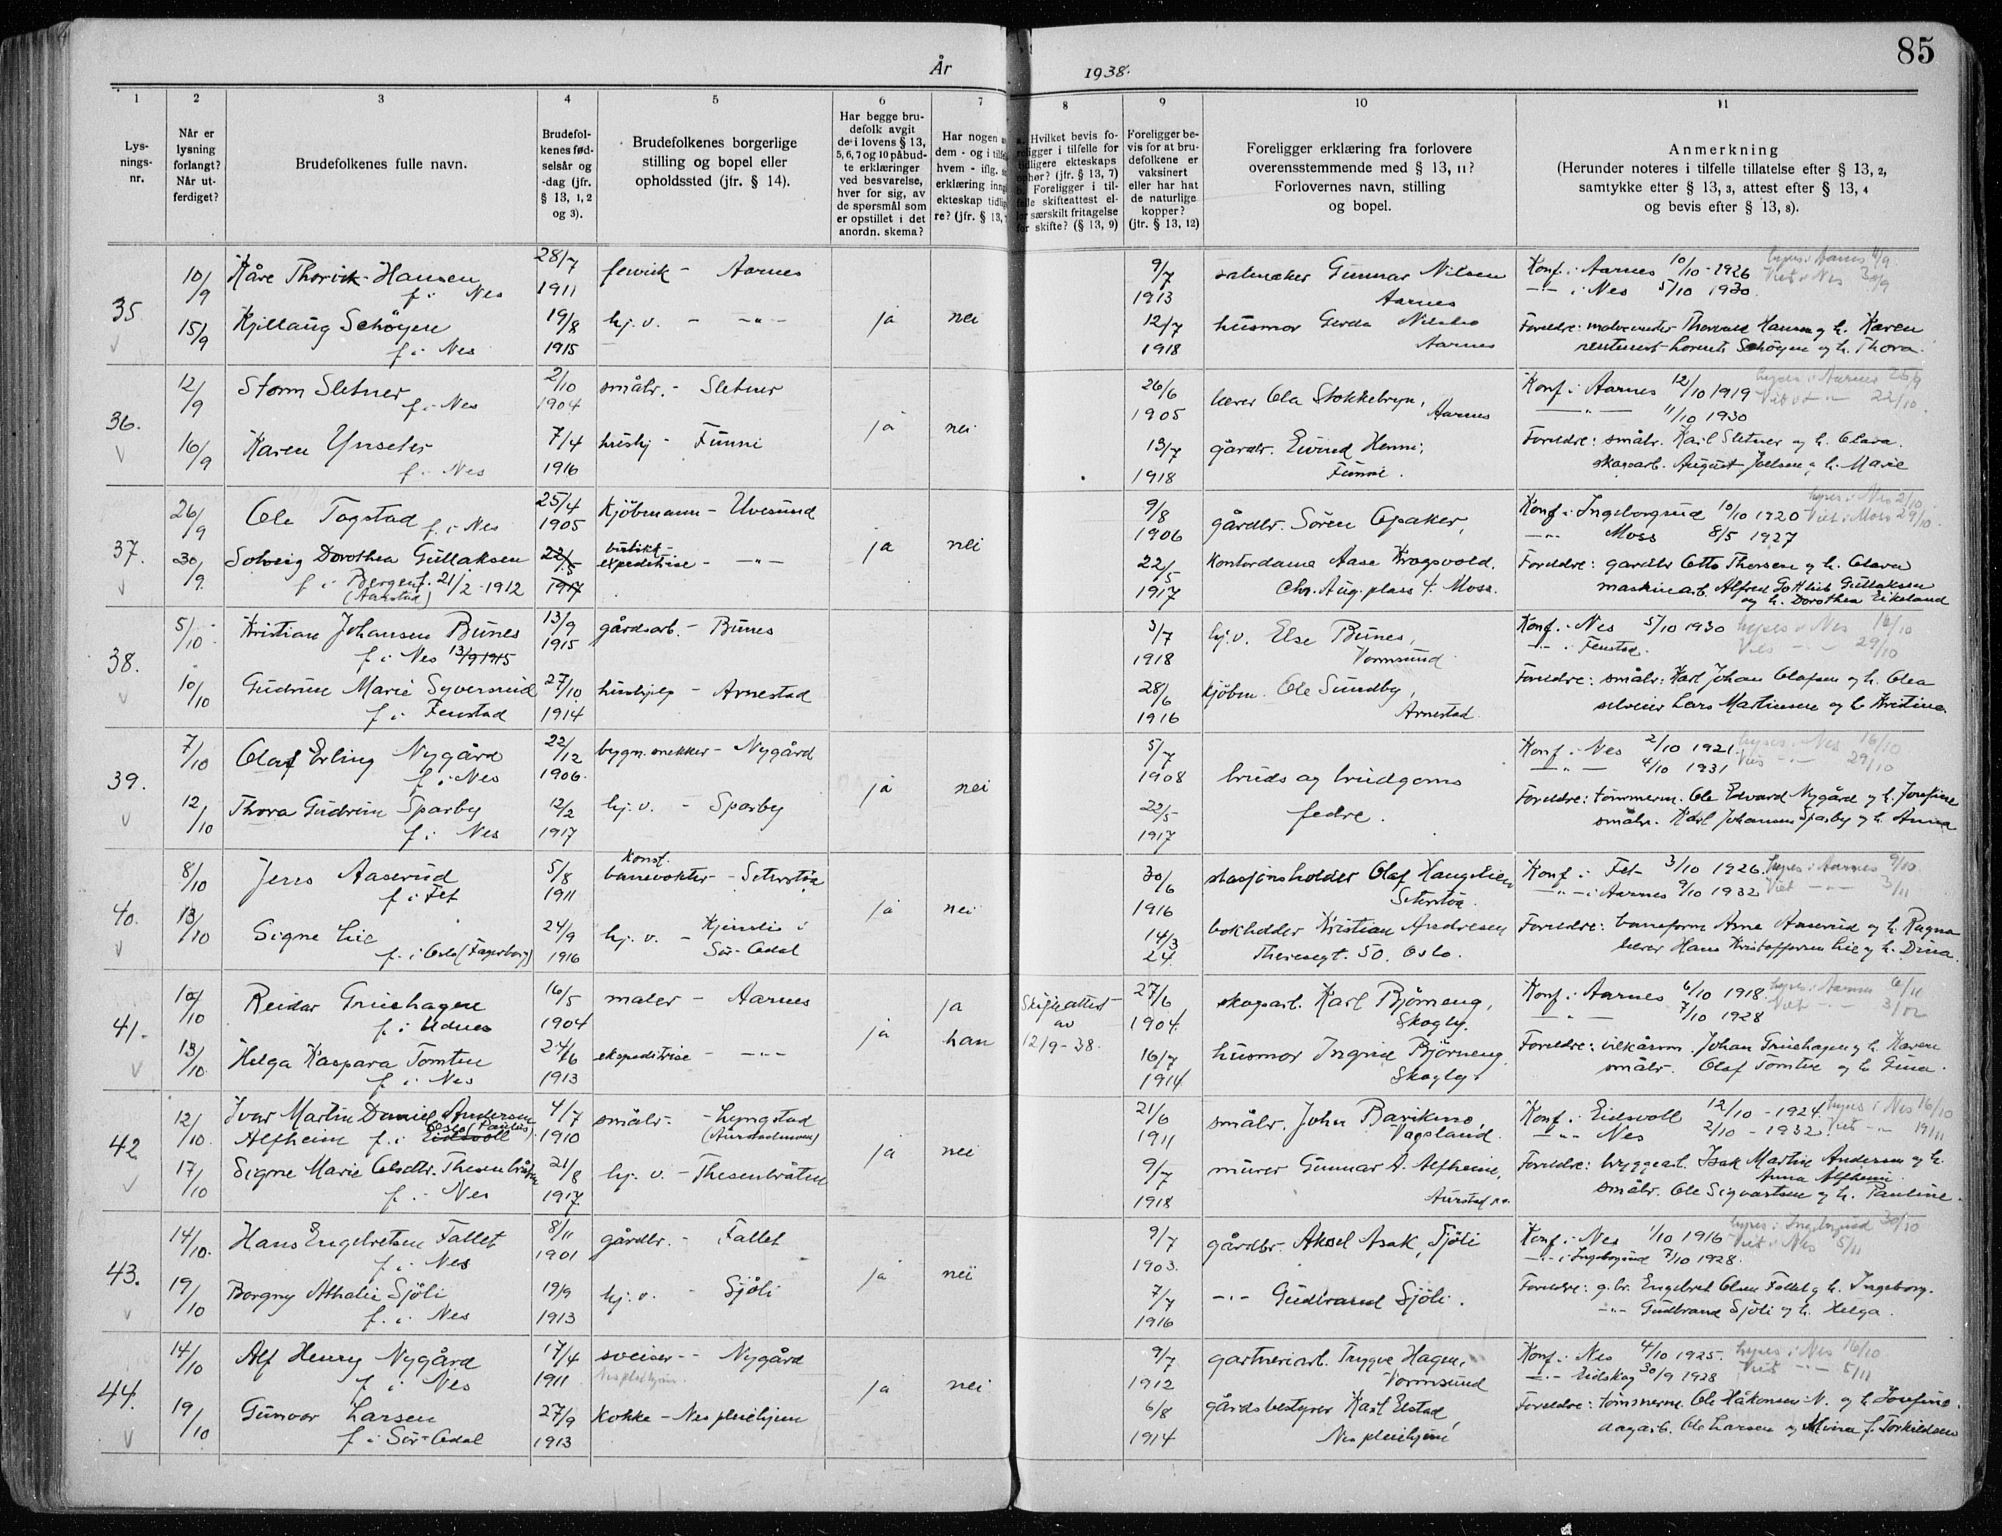 85
År 1938.
1 2 3 4 5 6 7 8 9 10 11
Lys-
nings-
nr.
Når er
lysning
forlangt?
Når ut-
ferdiget?
Brudefolkenes fulle navn.
Brudefol-
kenes fød-
selsår og
-dag (jfr.
§ 13, 1, 2
og 3).
Brudefolkenes borgerlige
stilling og bopel eller
opholdssted (jfr. § 14).
Har begge bru-
defolk avgit
de i lovens § 13,
5, 6, 7 og 10 påbud-
te erklæringer
ved besvarelse,
hver for sig, av
de spørsmål som
er opstillet i det
anordn. skema?
Har nogen
dem - og i
hvem - iflg.
erklæring inn
ekteskap tidlig
re? (jfr. § 13,
Hvilket bevis fo-
religger i tilfelle for
tidligere ekteskaps
ophør? (jfr. § 13, 7)
Foreligger i til-
felle skifteattest el-
ler særskilt fritagelse
for skifte? (§ 13, 9)
Foreligger be-
vis for at bru-
defolkene er
vaksinert
eller har hat
de naturlige
kopper?
(jfr. § 13, 12)
Foreligger erklæring fra forlovere
overensstemmende med § 13, 11?
Forlovernes navn, stilling
og bopel.
Anmerkning
(Herunder noteres i tilfelle tillatelse efter § 13, 2,
samtykke efter § 13, 3, attest efter § 13, 4
og bevis efter § 13, 8).
35
10/9 Kåre Hansen 28/7 Aarnes 9/7 salmaker Gunnar Nilsen Konf. i Aarnes 10/10-1926 lyses i Aarnes
f. i Nes 1911 1913 Aarnes -"- i Nes 5/10 1930. Viet i Nes 30/9
15/9 Kjellaug Schøyen 19/8 hj.v. - -"- ja nei 12/7 husmor Gerda Aarnes Foreldre: Hansen og h. Karen
f. i Nes 1915 1918 Schøyen og h. Thora.
36.
12/9 Storm Sletner 2/10 småbr. - Sletner 26/6 lærer Ola Stokkebryn, Konf. i Aarnes 12/10 1919 lyses i Aarnes 25/9
f. i Nes 1904 1905 Aarnes -"- 11/10 1930 22/10.
16/9 Karen 7/4 hushj - Funni ja nei 13/7 gårdbr. Eivind Henni, Foreldre: småbr. Karl Sletner og h. Olava.
f. i Nes 1916 1918 Funni. skogsarb. August Joelsen og h. Marie
37.
26/9 Ole Togstad f. i Nes 25/4 1905 Kjøbmann - Uvesund 9/8 1906 gårdbr. Søren Opaker, Konf. i Ingeborgrud 10/10 1920 lyses i Nes 2/10 Viet i Moss 29/10.
-"- Moss 8/5 1927
30/9 Solveig Dorothea Gullaksen 22/5 1917 butikk-
ekspeditrise - -"- ja nei 22/5 1917 Kontordame Aase Krogsvold. Chr. Aug. plass 4. Moss.
f. i Bergen f. 21/2 - 1912
(Aarstad)
Foreldre: gardbr Otto Thorsen og h. Olava
maskinarb. Alfred Gottlieb Gullaksen
og h. Dorothea Eikeland
38.
5/10 Kristian Johansen Bunes 13/9 1915 gårdsarb. - Bunes 3/7 1918 hj.v. Else Bunes, Vormsund Konf. i Nes 5/10 1930 lyses i Nes 16/10
f. i Nes 13/9 1915 -"- i Fenstad. Viet -"- 29/10
10/10 Gudrun Marie Syversrud 27/10 1914 hushjelp - Arnestad 28/6 1916 kjøbm. Ole Sundby, Arnestad. Foreldre: småbr. Karl Johan Olafsen og h. Olea
f. i Fenstad Lars Martinsen og h. Kristine
39.
7/10 Olaf Erling Nygård 22/12 1906. bygn. snekker - Nygård 5/7 1908 bruds og brudgoms Konf. i Nes 2/10 1921. lyses i Nes 16/10
f. i Nes -"- 4/10 1931 Viet -"- 29/10
12/10 Thora Gudrun Sparby 12/2 1917 hj. v. - Sparby ja nei 22/5 1917 fedre. Foreldre: tømmerm. Ole Edvard Nygård og h. Josefine
f. i Nes småbr. Karl Johansen Sparby og h. Anna
40.
8/10 Jens Aaserud 5/8 1911 Konst.
banevokter - Seterstøa 30/6 1916 stasjonsholder Olaf Haugelien Seterstøa Konf. i Fet 3/10 1926. lyses i Aarnes 9/10
f. i Fet -"- i Aarnes 9/10 1932 Viet -"- 3/11
13/10 Signe Lie 24/9 1916 hj. v. - Kjenslie i
Sør-Odal ja nei 14/3 24. bokholder Kristian Andresen Theresegt. 50. Oslo. Foreldre: baneform. Arne Aaserud og h. Ragna
f. i Oslo (Fagerborg) lærer Hans Kristoffersen Lie og h. Dina.
41.
10/10 Reidar Gruehagen 16/5 1904 maler - Aarnes ja Skifteattest 27/6 1904. skogsarb. Karl Bjørneng, Skogly. Konf. i Aarnes 6/10 1918. lyses i Aarnes 6/11
f. i Udnes av -"- 7/10 1928 Viet -"- 3/12
13/10. Helga Kaspara Tomten 24/6 1913 ekspeditrise - -"- ja han 12/9-38. 16/7 1914 husmor Ingrid Bjørneng Skogly. Foreldre: vilkårsm. Johan Gruehagen og h. Karen
f. i Nes småbr. Olaf Tomten og h. Gina.
42
12/10. Ivar Martin Daniel Andersen 4/7 1910 småbr - Lyngstad 21/6 1911 småbr. John Barikmo, Vagsland. Konf. i Eidsvoll 12/10 - 1924. lyses i Nes 16/10
Alfheim f. i Eidsvoll Oslo (Paulus) -"- Nes 2/10 - 1932. Viet -"- 19/11
17/10 Signe Marie Olsdtr. Thesenbråten 21/8 1917 hj. v. - Thesenbråten ja nei 9/7 1918 murer Gunnar A. Alfheim, Aurstad p.o. Foreldre: bryggearb. Isak Martin Andersen og h.
Anna Alfheim
f. i Nes småbr. Ole Sigvartsen og h. Pauline.
43.
14/10. Hans Engebretsen Fallet 8/11 1901 gårdbr. - Fallet 9/7 1903. gårdbr. Aksel Asak, Sjøli Konf. i Nes 1/10 1916 lyses i Ingeborgrud 30/10 Viet i Nes 5/11
f. i Nes -"- i Ingeborgrud 7/10 1928.
19/10 Borgny Athalie Sjøli 19/9 1913 hj. v. - Sjøli ja nei 7/7 1916 -"- Gudbrand Sjøli. Foreldre: g.br. Engebret Olsen Fallet og h. Ingeborg.
f. i Nes -"- Gudbrand Sjøli og h. Helga.
44.
14/10 Alf Henry Nygård 17/4 1911 sveiser - Nygård 9/7 1912 gartneriarb. Trygve Hagen, Vormsund Konf. i Nes 4/10 1925. lyses i Nes 16/10
f. i Nes Nes pleiehjem. -"- Eidskog 30/9 1928 Viet -"- 5/11
19/10 Gunvor Larsen 27/9 1913 Kokke - Nes pleiehjem ja nei 6/8 1914 gårdsbestyrer Karl Elstad, Nes pleiehjem Foreldre: tømmerm. Ole Håkonsen N. og h. Josefine.
f. i Sør-Odal dagarb. Ole Larsen og Mina f. Torkildsen